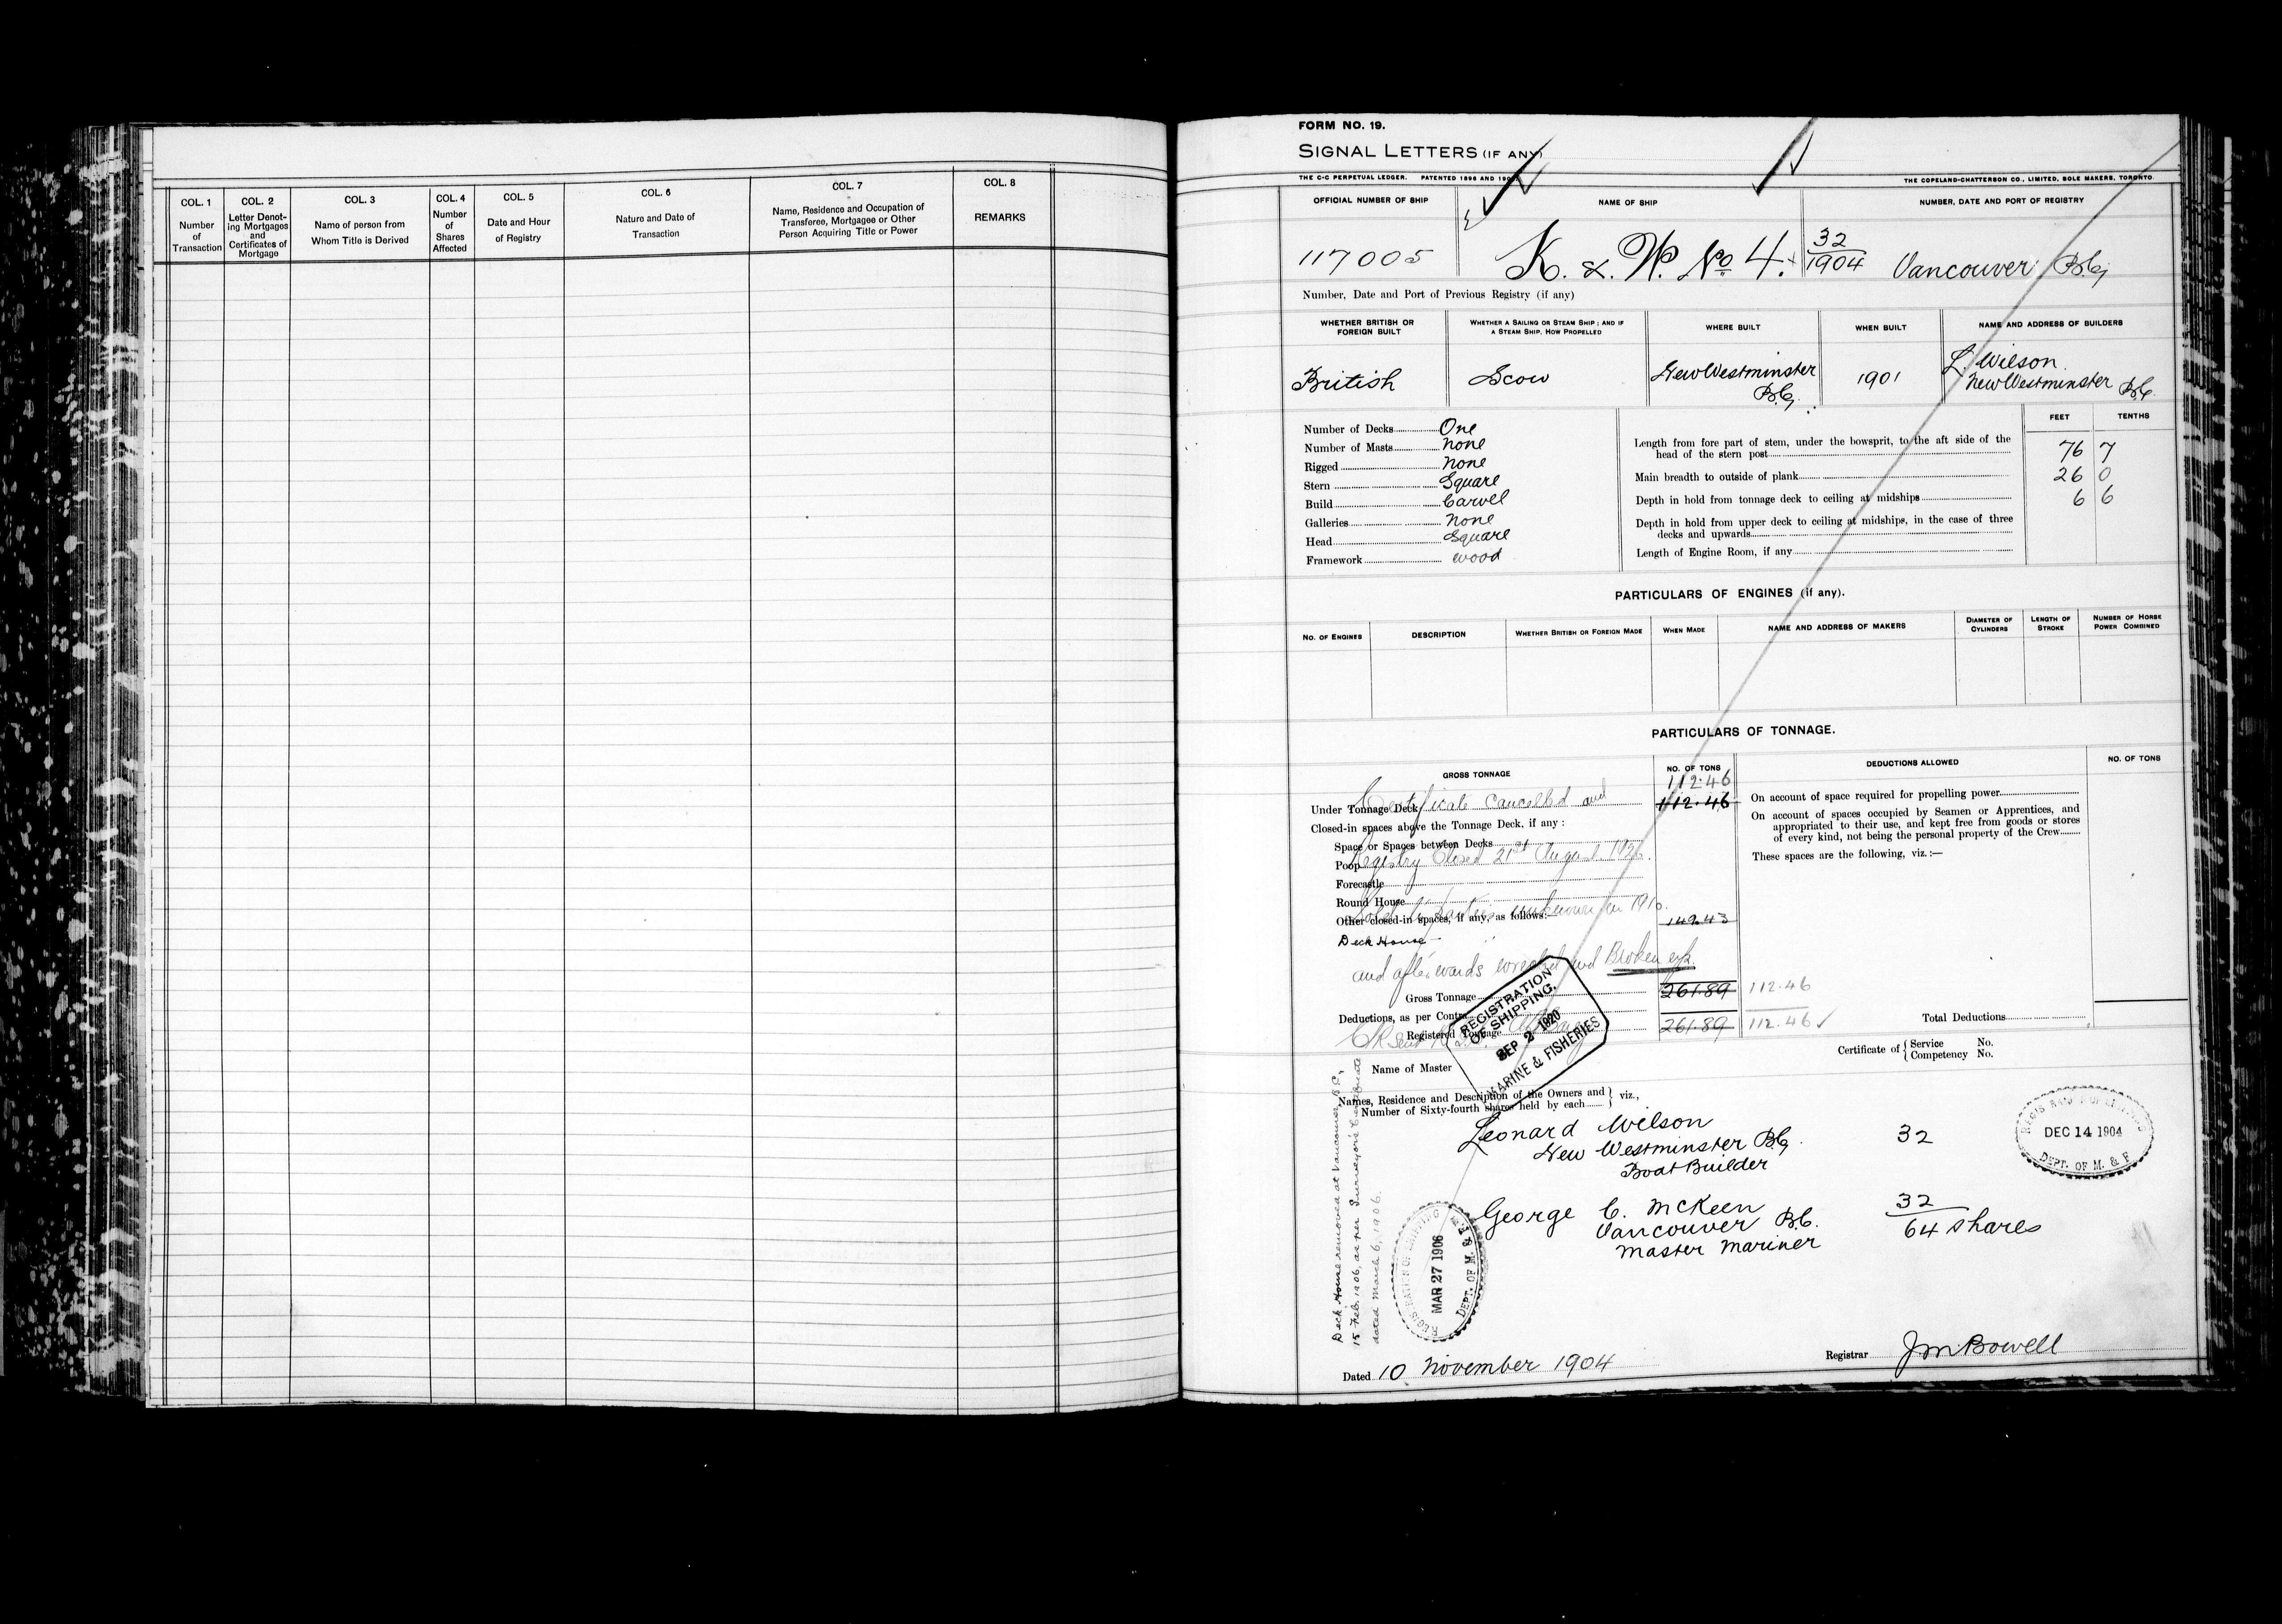 COL. 1
Number
of
Transaction
COL. 2
Letter Denot-
ing Mortgages
and
Certificates of
Mortgage
COL. 3
Name of person from
Whom Title is Derived
COL. 4
Number
of
Shares
Affected
COL. 5
Date and Hour
of Registry
COL. 6
Nature and Date of
Transaction
COL. 7
Name, Residence and Occupation of
Transferee, Mortgagee or Other
Person Acquiring Title or Power
COL. 8
REMARKS
FORM NO. 19.
SIGNAL LETTERS (IF ANY)
THE C-C PERPETUAL LEDGER. PATENTED 1898 AND
THE COPELAND-CHATTERSON CO., LIMITED, SOLE MAKERS, TORONTO.
OFFICIAL NUMBER OF SHIP
NAME OF SHIP
NUMBER, DATE AND PORT OF REGISTRY
117005
K. & W. No 4.
32
1904 Vancouver B.C.
Number, Date and Port of Previous Registry (if any)
WHETHER BRITISH OR
FOREIGN BUILT
WHETHER A SAILING OR STEAM SHIP; AND IF
A STEAM SHIP, HOW PROPELLED
WHERE BUILT
WHEN BUILT
NAME AND ADDRESS OF BUILDERS
British
Scow
New Westminster
B.C.
1901
L. Wilson
New Westminster B.C.
FEET TENTHS
Number of Decks One
Number of Masts None
Rigged None
Stern Square
Build Carvel
Galleries None
Head Square
Framework wood
Length from fore part of stem, under the bowsprit, to the aft side of the
head of the stern post 76 7
Main breadth to outside of plank 26 0
Depth in hold from tonnage deck to ceiling at midships 6 6
Depth in hold from upper deck to ceiling at midships, in the case of three
decks and upwards
Length of Engine Room, if any
PARTICULARS OF ENGINES (if any).
NO. OF ENGINES
DESCRIPTION
WHETHER BRITISH OR FOREIGN MADE
WHEN MADE
NAME AND ADDRESS OF MAKERS
DIAMETER OF
CYLINDERS
LENGTH OF
STROKE
NUMBER OF HORSE
POWER COMBINED
PARTICULARS OF TONNAGE.
GROSS TONNAGE
NO. OF TONS
DEDUCTIONS ALLOWED
NO. OF TONS
112.46
Under Tonnage Deck 112.46
Certificate cancelled and
Closed-in spaces above the Tonnage Deck, if any:
Space or Spaces between Decks
Poop
Registry Closed 21st August
Forecastle
Round House
Sold to parties unknown in 1910.
Other closed-in spaces, if any, as follows: 149.43
Deck House
and afterwards wrecked and Broken up.
Gross Tonnage 261.89 112.46
Deductions, as per Contra
Registered Tonnage 261.89 112.46
On account of space required for propelling power
On account of spaces occupied by Seamen or Apprentices, and
appropriated to their use, and kept free from goods or stores
of every kind, not being the personal property of the Crew
These spaces are the following, viz.:—
Total Deductions
REGISTRATION
OF SHIPPING.
SEP 2 1920
MARINE & FISHERIES
Name of Master
Certificate of { Service No.
Competency No.
Names, Residence and Description of the Owners and } viz.,
Number of Sixty-fourth shares held by each
Leonard Wilson 32
New Westminster B.C.
Boat Builder
George C. McKeen 32
Vancouver B.C. 64 shares
Master Mariner
DEC 14 1904
DEPT. OF M. & F.
Deck House removed at Vancouver, B.C.,
15 Feb. 1906, as per Surveyor's Certificate
dated March 6, 1906.
REGISTRATION OF SHIPPING
MAR 27 1906
DEPT. OF M. & F.
Dated 10 November 1904
Registrar J M Bowell